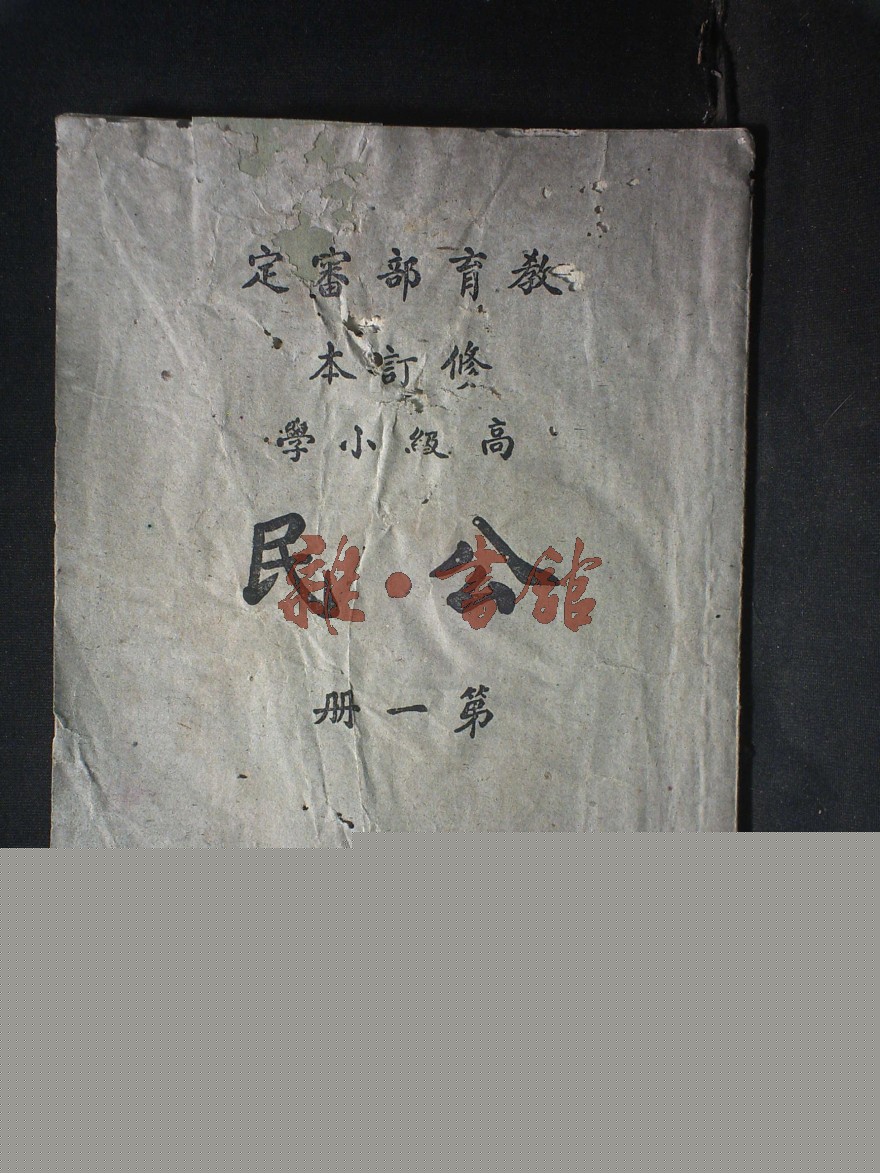 教育部審定
修訂本
高級小學
公民
雜·書館
第一冊